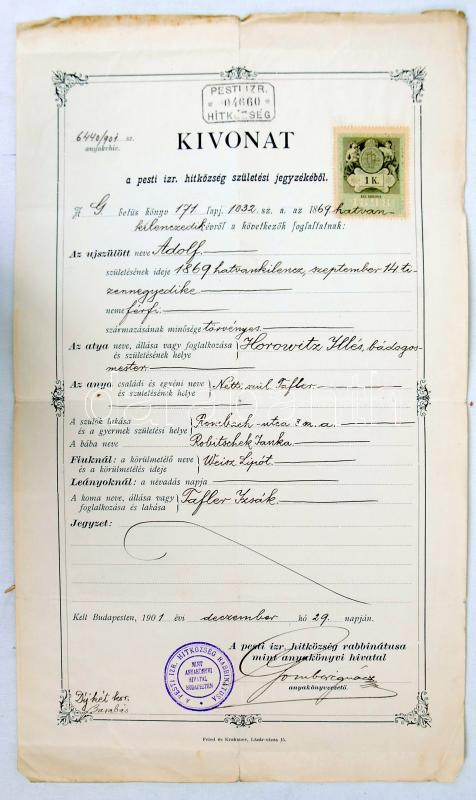 PESTI IZR.
04660
HITKÖZSÉG
6440/901. sz.
anyakvhiv.
KIVONAT
1 K
a pesti izr. hitközség születési jegyzékéből.
A G betüs könyv 171 lapj. 1032 sz. a. az 1869 hatvan-
kilenczedik évről a következők foglaltatnak:
Az ujszülött neve Adolf.
születésének ideje 1869 hatvankilencz, szeptember 14 ti-
zennegyedike
neme férfi
származásának minősége törvényes.
Az atya neve, állása vagy foglalkozása
és születésének helye
Horowitz Illés, bádogos-
mester.
Az anya családi és egyéni neve
és születésének helye
Netti szül. Tafler.
A szülők lakása
és a gyermek születési helye
utca 3
A bába neve Robitschek Janka
Fiuknál: a körülmetélő neve
és a körülmetélés ideje
Weisz Lipót.
Leányoknál: a névadás napja
A koma neve, állása vagy
foglalkozása és lakása
Tafler Izsák.
Jegyzet:
Kelt Budapesten, 1901 évi deczember hó 29. napján.
A pesti izr. hitközség rabbinátusa
mint anyakönyvi hivatal
anyakönyvvezető.
A PESTI IZR. HITKÖZSÉG RABBINÁTUSA
MINT
ANYAKÖNYVI
HIVATAL
BUDAPESTEN
Díj két kor.
Fried és Krakauer, Lázár-utcza 13.